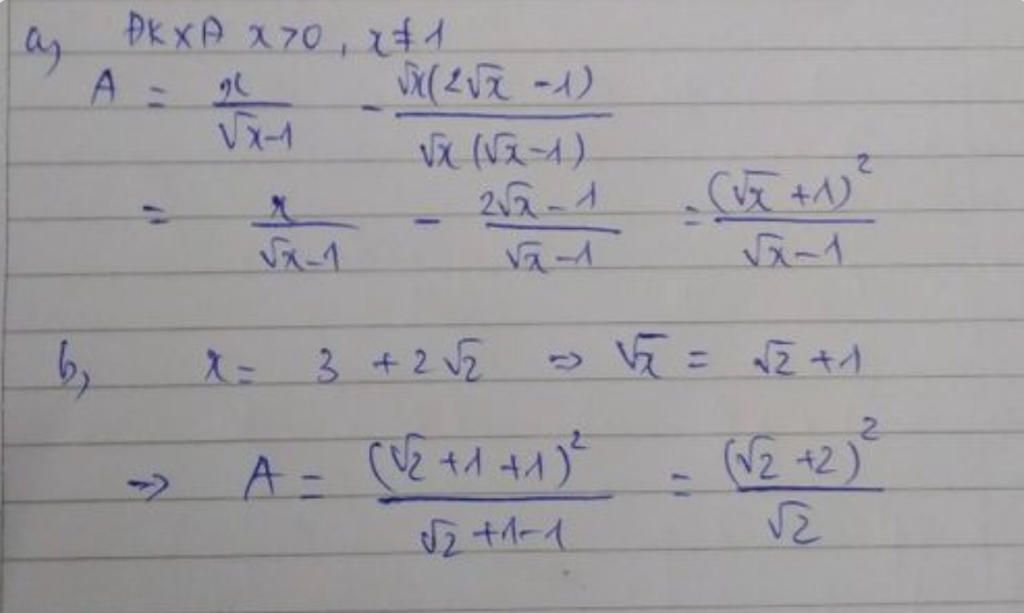 a, ĐKXĐ x>0, x≠1
A = x/(√x-1) - √x(2√x -1)/(√x(√x-1))
= x/(√x-1) - (2√x-1)/(√x-1) = (√x+1)²/(√x-1)
b, x= 3 +2√2 => √x = √2+1
=> A= (√2+1+1)²/(√2+1-1) = (√2+2)²/√2